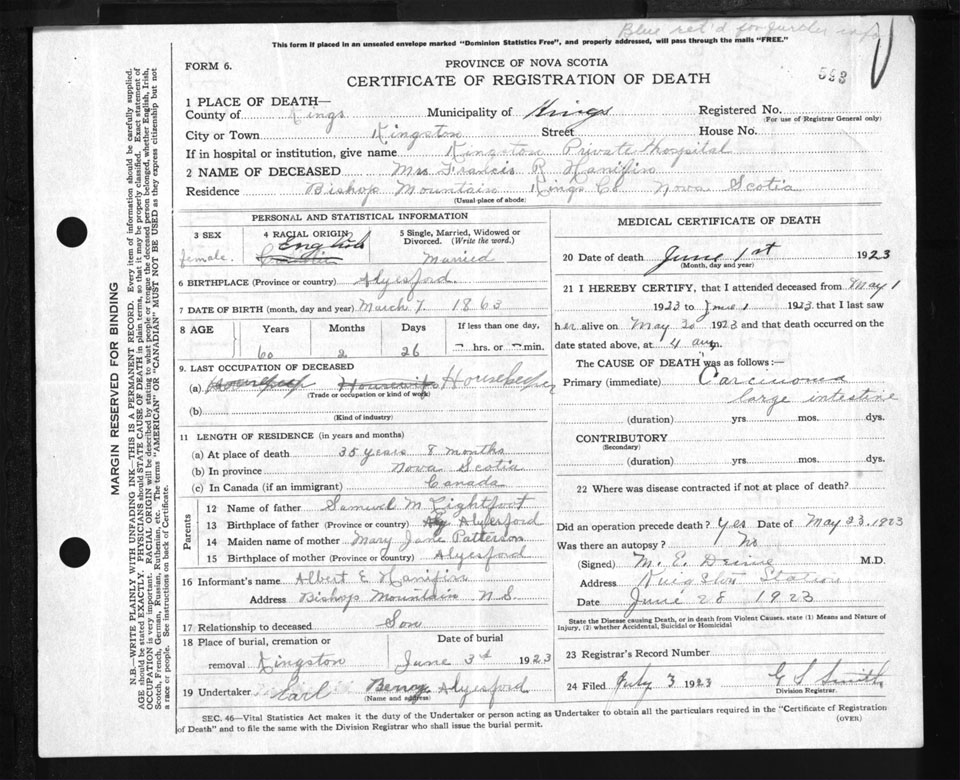 Blue ret'd for further info
This form if placed in an unsealed envelope marked "Dominion Statistics Free", and properly addressed, will pass through the mails "FREE."
FORM 6.
PROVINCE OF NOVA SCOTIA
CERTIFICATE OF REGISTRATION OF DEATH
1 PLACE OF DEATH—
County of Kings Municipality of Kings Registered No.
(For use of Registrar General only)
City or Town Kingston Street House No.
If in hospital or institution, give name Kingston Private Hospital
2 NAME OF DECEASED Mrs Francis R Hanifin
Residence Bishop Mountain Kings Co Nova Scotia
(Usual place of abode)
PERSONAL AND STATISTICAL INFORMATION
3 SEX 4 RACIAL ORIGIN 5 Single, Married, Widowed or Divorced. (Write the word.)
female. English Married
6 BIRTHPLACE (Province or country) Alyesford
7 DATE OF BIRTH (month, day and year) March 7. 1863
8 AGE Years Months Days If less than one day,
60 2 26 hrs. or min.
9. LAST OCCUPATION OF DECEASED
(a) Housewife Housekeeper
(Trade or occupation or kind of work)
(b)
(Kind of industry)
11 LENGTH OF RESIDENCE (in years and months)
(a) At place of death 35 years 8 months
(b) In province Nova Scotia
(c) In Canada (if an immigrant) Canada
Parents
12 Name of father Samuel M Lightfoot
13 Birthplace of father (Province or country) Alyesford
14 Maiden name of mother Mary Jane Patterson
15 Birthplace of mother (Province or country) Alyesford
16 Informant's name Albert E Hanifin
Address Bishop Mountain N.S.
17 Relationship to deceased Son
18 Place of burial, cremation or removal Kingston
Date of burial June 3rd 1923
19 Undertaker Earl Alyesford
(Name and address)
MEDICAL CERTIFICATE OF DEATH
20 Date of death June 1st 1923
(Month, day and year)
21 I HEREBY CERTIFY, that I attended deceased from May 1
1923 to June 1 1923 that I last saw
her alive on May 30 1923 and that death occurred on the
date stated above, at 4 a.m.
The CAUSE OF DEATH was as follows:—
Primary (immediate) Carcinoma
large intestine
(duration) yrs. mos. dys.
CONTRIBUTORY
(Secondary)
(duration) yrs. mos. dys.
22 Where was disease contracted if not at place of death?
Did an operation precede death? Yes Date of May 23. 1923
Was there an autopsy? No
(Signed) M. E. M.D.
Address Kingston Station
Date June 28 1923
State the Disease causing Death, or in death from Violent Causes. state (1) Means and Nature of Injury, (2) whether Accidental, Suicidal or Homicidal
23 Registrar's Record Number
24 Filed July 3 1923 G S Smith
Division Registrar.
SEC. 46—Vital Statistics Act makes it the duty of the Undertaker or person acting as Undertaker to obtain all the particulars required in the "Certificate of Registration
of Death" and to file the same with the Division Registrar who shall issue the burial permit.
(OVER)
MARGIN RESERVED FOR BINDING
N.B.—WRITE PLAINLY WITH UNFADING INK—THIS IS A PERMANENT RECORD. Every item of information should be carefully supplied.
AGE should be stated EXACTLY. PHYSICIANS should STATE CAUSE OF DEATH in plain terms, so that it may be properly classified. Exact statement of
OCCUPATION is very important. RACIAL ORIGIN will be described by stating to what people or tongue the deceased person belonged, whether English, Irish,
Scotch, French, German, Russian, Ruthenian, etc. The terms "AMERICAN" OR "CANADIAN" MUST NOT BE USED as they express citizenship but not
a race or people. See instructions on back of Certificate.